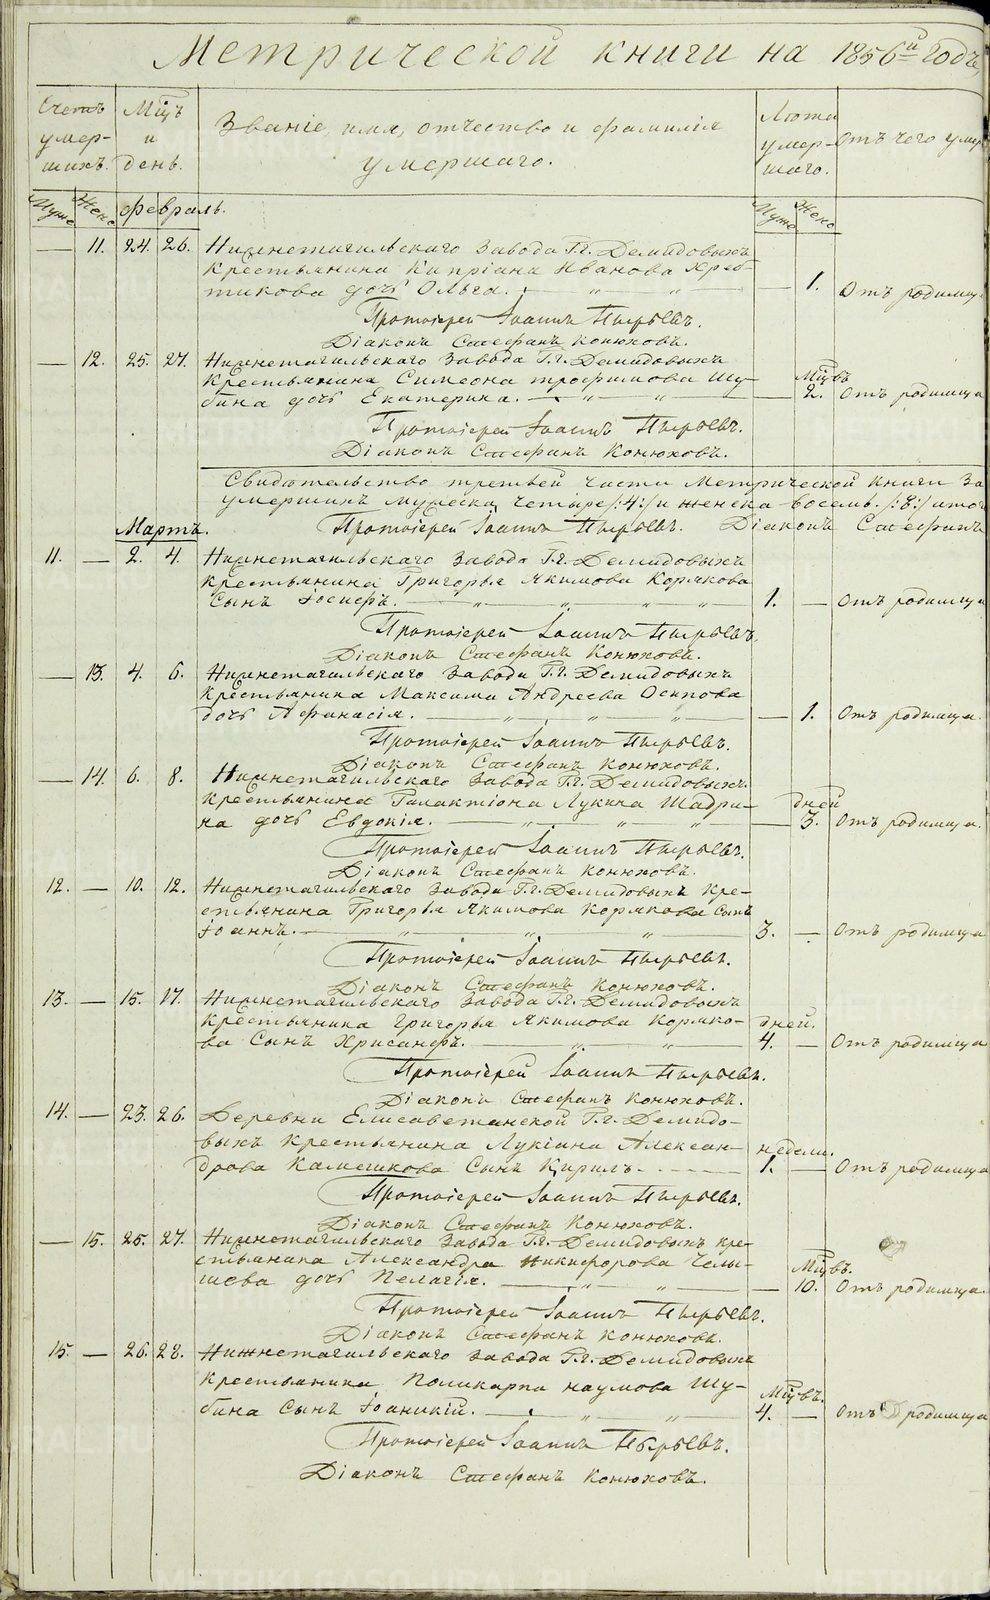 Метрической книги на 1856й годъ,
Счетъ умер- шихъ.
Мцъ и день.
Званіе, имя, отчество и фамилія умершаго.
Лѣта умер- шаго.
Отъ чего умер
Муж Жен
Февраль.
Муж Жен
— 11. 24. 26. Нижнетагильскаго Завода Гг. Демидовыхъ
Крестьянина Кипріана Иванова Хреб-
тикова дочь Ольга. — 1. Отъ родимца.
Протоіерей Іоаннъ Пырьевъ.
Діаконъ Стефанъ Конюховъ.
— 12. 25. 27. Нижнетагильскаго Завода Гг. Демидовыхъ
Крестьянина Симеона Трофимова Шу- Мцвъ
бина дочь Екатерина. — 2. Отъ родимца
Протоіерей Іоаннъ Пырьевъ.
Діаконъ Стефанъ Конюховъ.
Свидѣтельство третьей части Метрической книги За
умершихъ мужеска четыре /:4:/ и женска восемь. /:8:/ итог
Протоіерей Іоаннъ Пырьевъ. Діаконъ Стефанъ
Мартъ.
11. — 2. 4. Нижнетагильскаго Завода Гг. Демидовыхъ
Крестьянина Григорья Якимова Корякова
Сынъ Іосифъ. 1. — Отъ родимца
Протоіерей Іоаннъ Пырьевъ.
Діаконъ Стефанъ Конюховъ.
— 13. 4. 6. Нижнетагильскаго Завода Гг. Демидовыхъ
Крестьянина Максима Андреева Осипова
дочь Афанасія. — 1. Отъ родимца.
Протоіерей Іоаннъ Пырьевъ.
Діаконъ Стефанъ Конюховъ.
— 14. 6. 8. Нижнетагильскаго Завода Гг. Демидовыхъ
Крестьянина Галактіона Лукина Шадри- дней
на дочь Евдокія. — 3. Отъ родимца.
Протоіерей Іоаннъ Пырьевъ.
Діаконъ Стефанъ Конюховъ.
12. — 10. 12. Нижнетагильскаго Завода Гг. Демидовыхъ Кре-
стьянина Григорья Якимова Корякова Сынъ
Іоаннъ. 3. — Отъ родимца
Протоіерей Іоаннъ Пырьевъ.
Діаконъ Стефанъ Конюховъ.
13. — 15. 17. Нижнетагильскаго Завода Гг. Демидовыхъ
Крестьянина Григорья Якимова Коряко- дней.
ва Сынъ Хрисанфъ. 4. — Отъ родимца
Протоіерей Іоаннъ Пырьевъ.
Діаконъ Стефанъ Конюховъ.
14. — 23. 26. Деревни Елисаветинской Гг. Демидо-
выхъ Крестьянина Лукіана Алексан- недели.
дрова Камешкова Сынъ Кирилъ. 1. — Отъ родимца
Протоіерей Іоаннъ Пырьевъ.
Діаконъ Стефанъ Конюховъ.
— 15. 25. 27. Нижнетагильскаго Завода Гг. Демидовыхъ Кре-
стьянина Александра Никифорова Челы- Мцвъ.
шева дочь Пелагія. — 10. Отъ родимца.
Протоіерей Іоаннъ Пырьевъ.
Діаконъ Стефанъ Конюховъ.
15. — 26. 28. Нижнетагильскаго Завода Гг. Демидовыхъ
Крестьянина Поликарпа Наумова Шу- Мцвъ.
бина Сынъ Іоанникій. 4. — Отъ родимца
Протоіерей Іоаннъ Пырьевъ.
Діаконъ Стефанъ Конюховъ.
METRIKI.GASO-URAL.RU